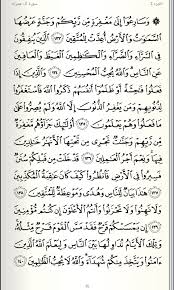 وَسَارِعُوٓاْ إِلَىٰ مَغْفِرَةٍ مِّن رَّبِّكُمْ وَجَنَّةٍ عَرْضُهَا
ٱلسَّمَٰوَٰتُ وَٱلْأَرْضُ أُعِدَّتْ لِلْمُتَّقِينَ ١٣٣ ٱلَّذِينَ يُنفِقُونَ
فِي ٱلسَّرَّآءِ وَٱلضَّرَّآءِ وَٱلْكَٰظِمِينَ ٱلْغَيْظَ وَٱلْعَافِينَ
عَنِ ٱلنَّاسِۗ وَٱللَّهُ يُحِبُّ ٱلْمُحْسِنِينَ ١٣٤ وَٱلَّذِينَ
إِذَا فَعَلُواْ فَٰحِشَةً أَوْ ظَلَمُوٓاْ أَنفُسَهُمْ ذَكَرُواْ ٱللَّهَ فَٱسْتَغْفَرُواْ
لِذُنُوبِهِمْ وَمَن يَغْفِرُ ٱلذُّنُوبَ إِلَّا ٱللَّهُ وَلَمْ يُصِرُّواْ عَلَىٰ
مَا فَعَلُواْ وَهُمْ يَعْلَمُونَ ١٣٥ أُوْلَٰٓئِكَ جَزَآؤُهُم مَّغْفِرَةٌ
مِّن رَّبِّهِمْ وَجَنَّٰتٌ تَجْرِي مِن تَحْتِهَا ٱلْأَنْهَٰرُ خَٰلِدِينَ
فِيهَاۚ وَنِعْمَ أَجْرُ ٱلْعَٰمِلِينَ ١٣٦ قَدْ خَلَتْ مِن قَبْلِكُمْ سُنَنٌ
فَسِيرُواْ فِي ٱلْأَرْضِ فَٱنظُرُواْ كَيْفَ كَانَ عَٰقِبَةُ ٱلْمُكَذِّبِينَ
١٣٧ هَٰذَا بَيَانٌ لِّلنَّاسِ وَهُدًى وَمَوْعِظَةٌ لِّلْمُتَّقِينَ ١٣٨
وَلَا تَهِنُواْ وَلَا تَحْزَنُواْ وَأَنتُمُ ٱلْأَعْلَوْنَ إِن كُنتُم مُّؤْمِنِينَ
١٣٩ إِن يَمْسَسْكُمْ قَرْحٌ فَقَدْ مَسَّ ٱلْقَوْمَ قَرْحٌ مِّثْلُهُۥۚ
وَتِلْكَ ٱلْأَيَّامُ نُدَاوِلُهَا بَيْنَ ٱلنَّاسِ وَلِيَعْلَمَ ٱللَّهُ ٱلَّذِينَ
ءَامَنُواْ وَيَتَّخِذَ مِنكُمْ شُهَدَآءَۗ وَٱللَّهُ لَا يُحِبُّ ٱلظَّٰلِمِينَ ١٤٠